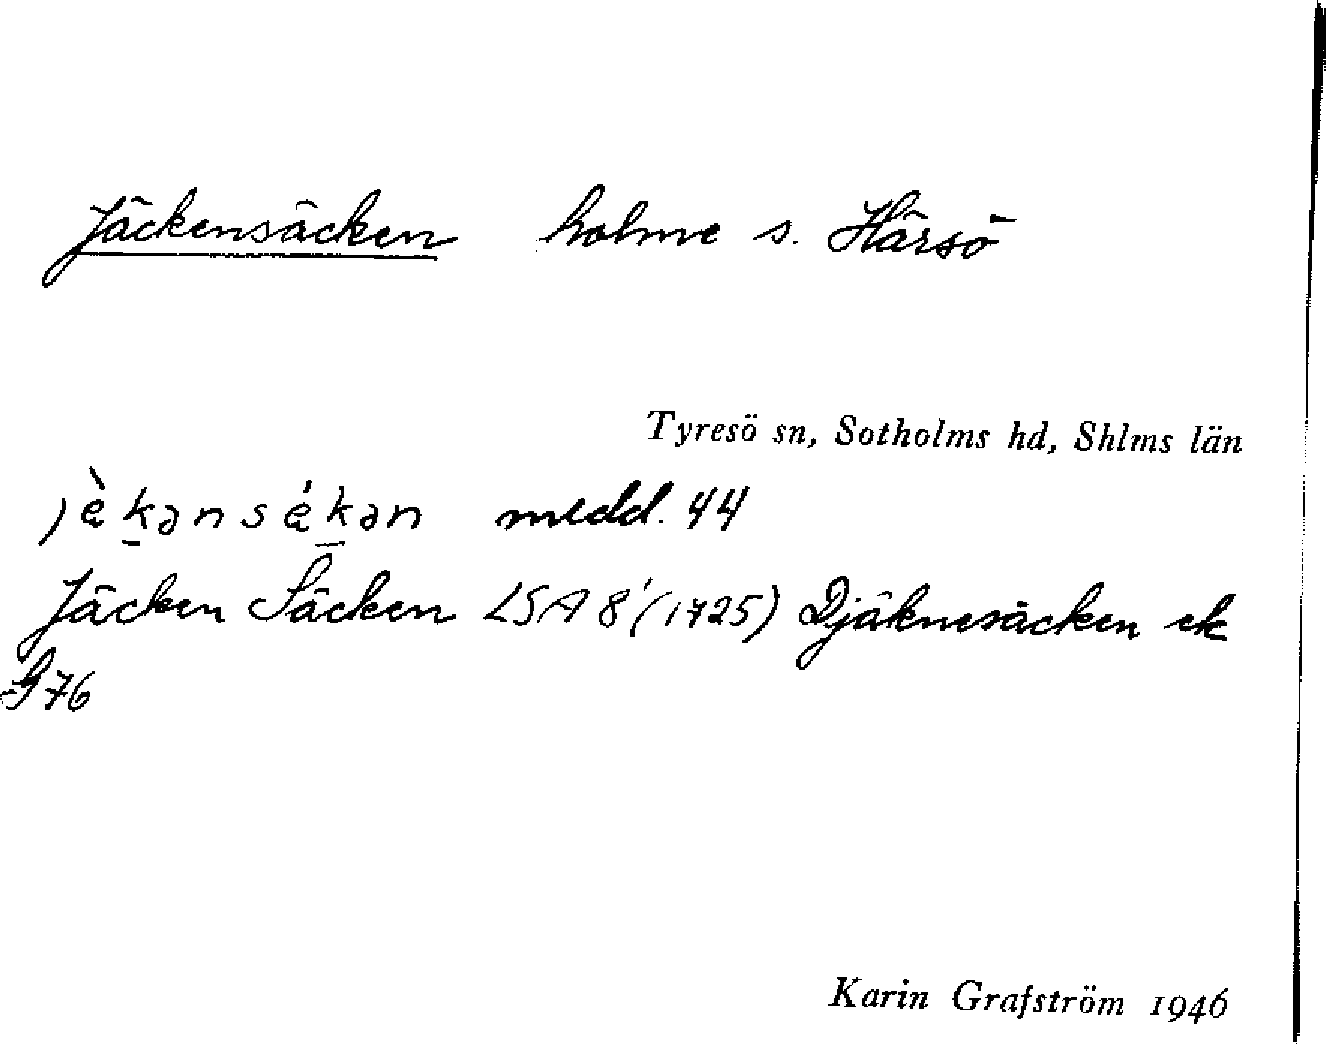 Jäckensäcken holme s. Härsö
Tyresö sn, Sotholms hd, Shlms län
jèkənsékən medd. 44
Jäcken Säcken LSA 8' (1725) Djäknesäcken ek
G76
Karin Grafström 1946